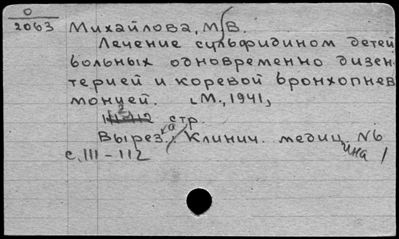 О
2063
Михайлова, М. В.
Лечение сульфидином детей
больных одновременно дизен-
терией и коревой бронхопнев
монией. М., 1941,
стр.
Вырез. Клинич. медиц
ина
№6
с. 111 - 112